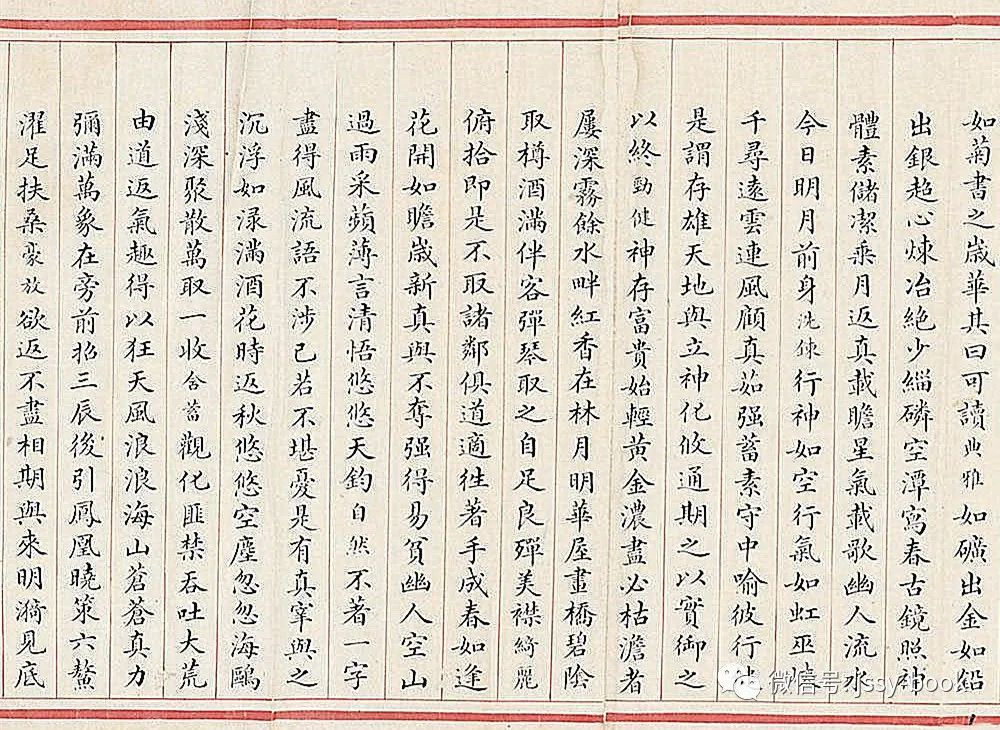 如菊書之歲華其曰可讀典雅如礦出金如鉛
出銀超心煉冶絕少緇磷空潭寫春古鏡照神
體素儲潔乘月返真載瞻星氣載歌幽人流水
今日明月前身洗煉行神如空行氣如虹巫峽
千尋遠雲連風顧真茹强蓄素守中喻彼行健
是謂存雄天地與立神化攸通期之以實御之
以終勁健神存富貴始輕黃金濃盡必枯澹者
屢深霧餘水畔紅香在林月明華屋畫橋碧陰
取樽酒滿伴客彈琴取之自足良殫美襟綺麗
俯拾即是不取諸鄰俱道適往著手成春如逢
花開如瞻歲新真與不奪强得易貧幽人空山
過雨采蘋薄言清悟悠悠天鈞自然不著一字
盡得風流語不涉己若不堪憂是有真宰與之
沉浮如淥滿酒花時返秋悠悠空塵忽忽海鷗
淺深聚散萬取一收含蓄觀化匪禁吞吐大荒
由道返氣趣得以狂天風浪浪海山蒼蒼真力
彌滿萬象在旁前招三辰後引鳳凰曉策六鰲
濯足扶桑豪放欲返不盡相期與來明漪見底
微信号: jssy-book